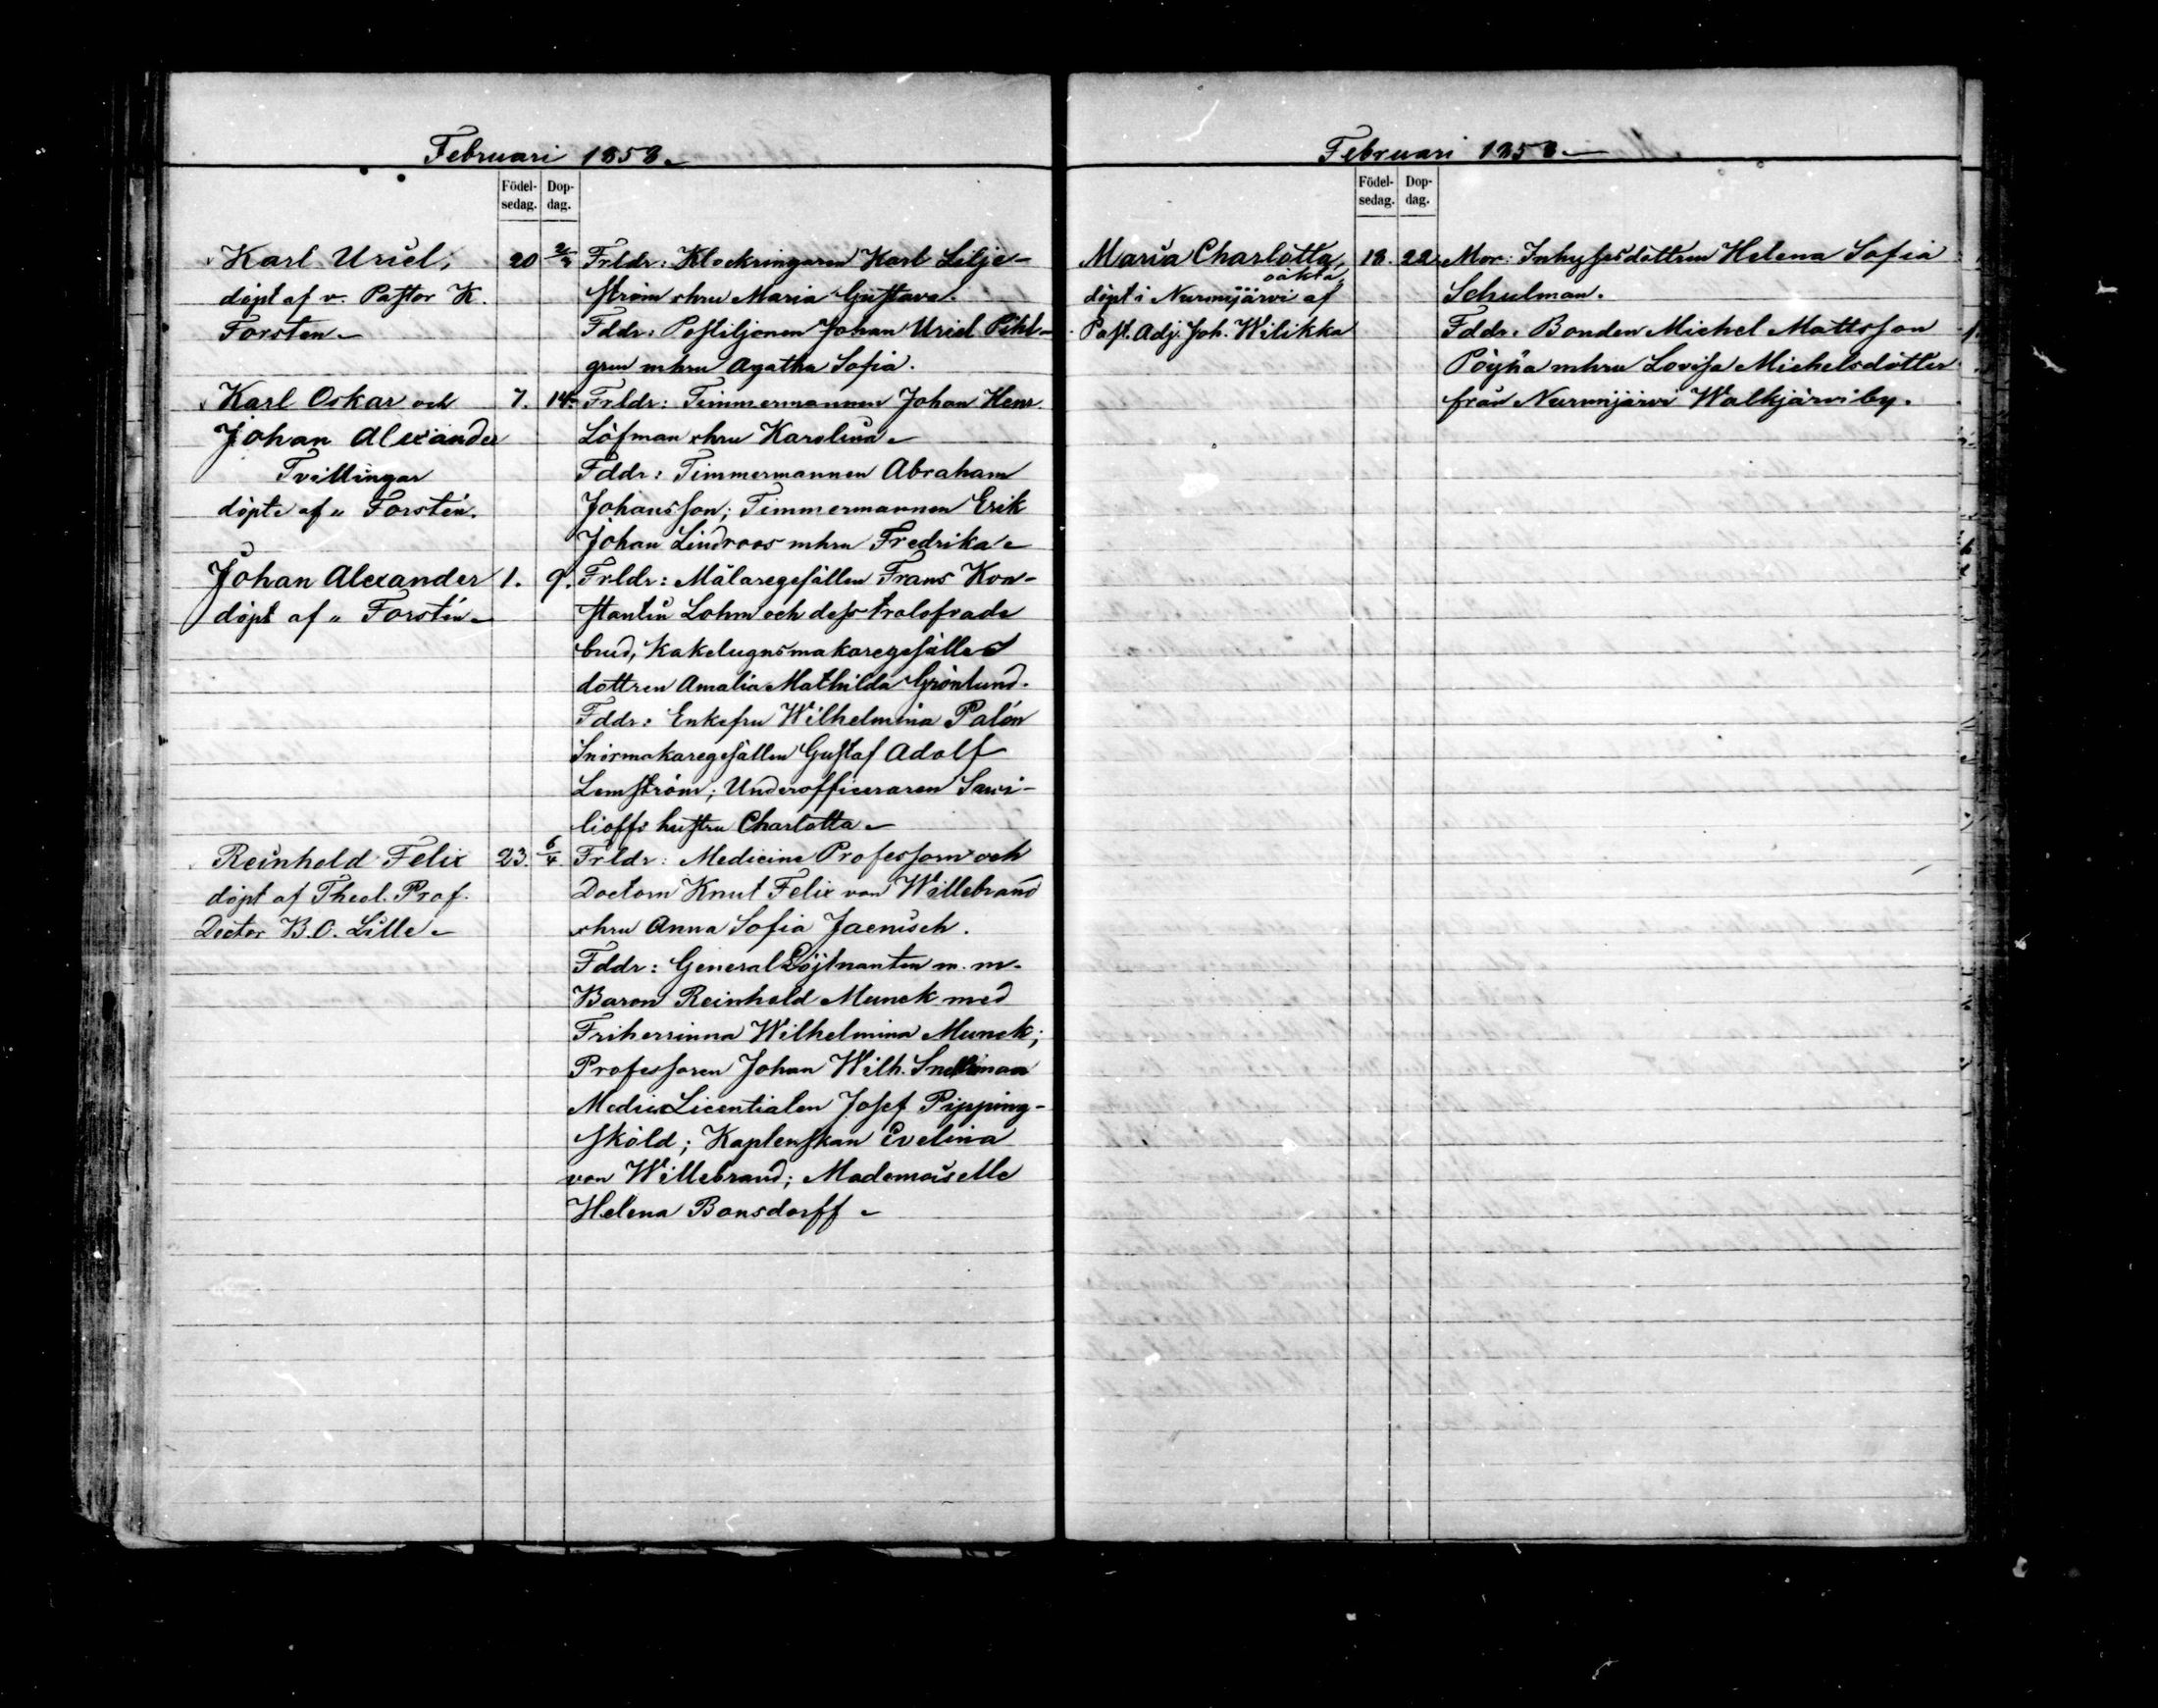 Februari 1858.
Födel-
sedag.
Dop-
dag.
Karl Uriel,
döpt af v. Pastor K.
Forsten
20 2/3
Frldr: Klockringaren Karl Lilje-
ström o hru Maria Gustava.
Fddr: Postiljonen Johan Uriel Pihl-
gren m hru Agatha Sofia.
Karl Oskar och
Johan Alexander
Tvillingar
döpte af " Forstén.
7. 14.
Frldr: Timmermannen Johan Henr.
Löfman o hru Karolina
Fddr: Timmermannen Abraham
Johansson; Timmermannen Erik
Johan Lindroos m hru Fredrika
Johan Alexander
döpt af " Forstén
1. 9.
Frldr: Målaregesällen Frans Kon-
stantin Lohm och dess trolofvade
brud, Kakelugnsmakaregesälls
dottren Amalia Mathilda Grönlund.
Fddr: Enkefru Wilhelmina Palén
Snörmakaregesällen Gustaf Adolf
Lemström; Underofficeraren
lioffs hustru Charlotta
Reinhold Felix
döpt af Theol. Prof.
Doctor B. O. Lille
23. 6/4
Frldr: Medicine Professorn och
Doctorn Knut Felix von Willebrand
o hru Anna Sofia Jaenisch.
Fddr: General Löjtnanten m. m.
Baron Reinhold Munck med
Friherrinna Wilhelmina Munck;
Professoren Johan Wilh. Snellman
Medic. Licentiaten Josef Pipping-
sköld; Kaptenskan Evelina
von Willebrand; Mademoiselle
Helena Bonsdorff
Februari 1858
Födel-
sedag.
Dop-
dag.
Maria Charlotta,
oäkta,
döpt i Nurmijärvi af
Past. Adj. Joh. Wilikka
18. 22
Mor: Inhysesdottren Helena Sofia
Schulman.
Fddr: Bonden Michel Mattsson
Pöyhä m hru Lovisa Michelsdotter
från Nurmijärvi Walkjärvi by.